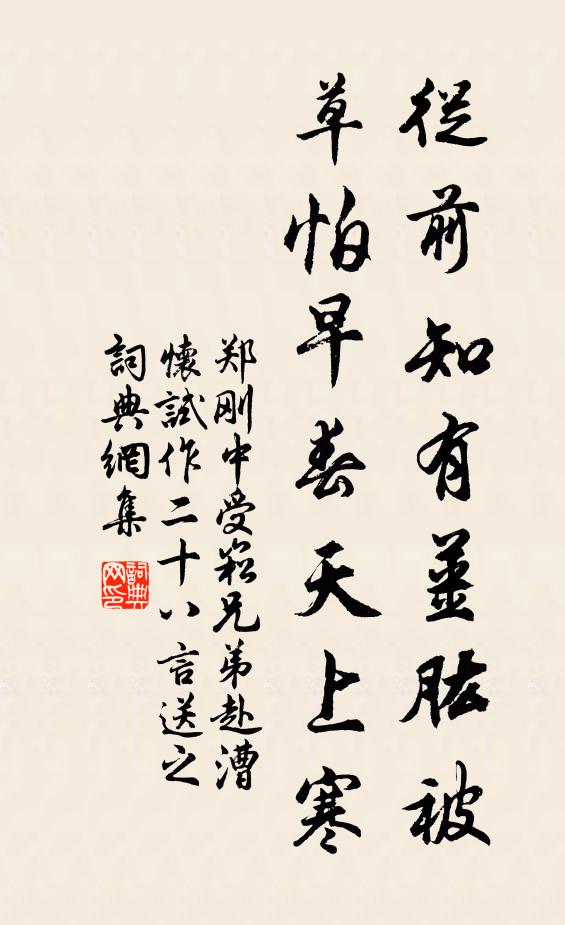 從前知有薑肱被
草怕早春天上寒
郑刚中受崧兄弟赴漕
懷試作二十八言送之
詞典網集
詞典网印